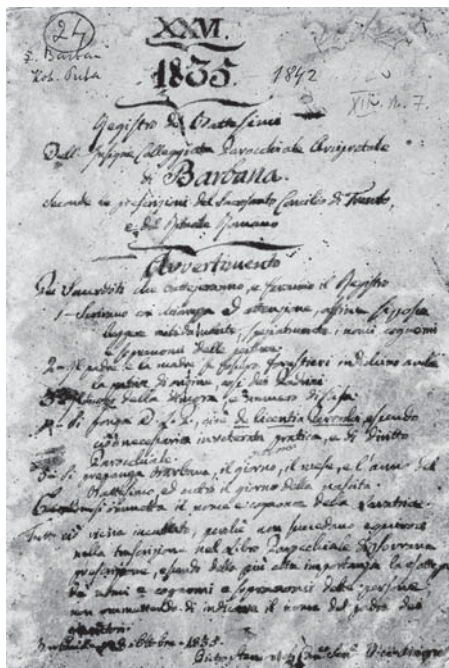 24
XXVI.
1835. 1842
XIX. N. 7.
Registro de' Battesimi
Dell' Insigne Colleggiata Parocchiale Arcipretale
di Barbana.
secondo le prescrizioni del Sacrosanto Concilio di Trento,
e del Rituale Romano
Avvertimento
il Registro
1 - Scrivano con ed attenzione, affine si possa
leggere nitidamente, i nomi cognomi
e sopranomi delle persone.
2 - Il padre e la madre se fossero forestieri indichino anche
la patria di origine, così dei Padrini
3 - della dimora, e numero di casa.
4 - Si ponga D. L. P., cioè de licentia Parochi, essendo
ciò necessario inveterata pratica, e di diritto
Parocchiale.
5 - Si preponga Barbana, il giorno, il mese, e l'anno del
Battesimo, ed entro il giorno della nascita.
6 - non si ommetta il nome e cognome della Levatrice.
Tutto ciò viene inculcato, perchè non succedano equivoci
nella trascrizione nel Libro Parocchiale
prescrizione, essendo della più alta importanza
de' nomi e cognomi e sopranomi delle persone
non ommettendo di indicare il nome del padre dei
genitori.
1835.